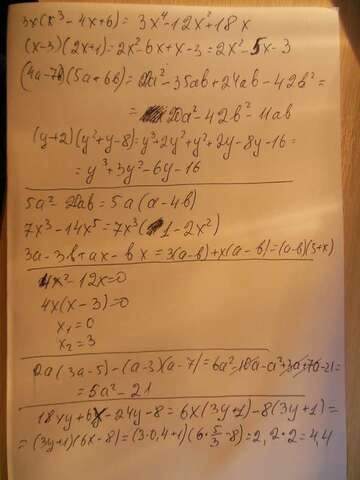 3x(x³-4x+6) = 3x⁴-12x²+18x
(x-3)(2x+1)=2x²-6x+x-3=2x²-5x-3
(4a-7b)(5a+6b)=20a²-35ab+24ab-42b²=
= 20a²-42b²-11ab
(y+2)(y²+y-8)=y³+2y²+y²+2y-8y-16=
= y³+3y²-6y-16
5a²-20ab=5a(a-4b)
7x³-14x⁵=7x³(1-2x²)
3a-3b+ax-bx=3(a-b)+x(a-b)=(a-b)(3+x)
4x²-12x=0
4x(x-3)=0
x₁=0
x₂=3
2a(3a-5)-(a-3)(a-7)=6a²-10a-a²+3a+7a-21=
=5a²-21
18xy+6x-24y-8=6x(3y+1)-8(3y+1)=
=(3y+1)(6x-8)=(3·0,4+1)(6·5/3-8)=2,2·2=4,4